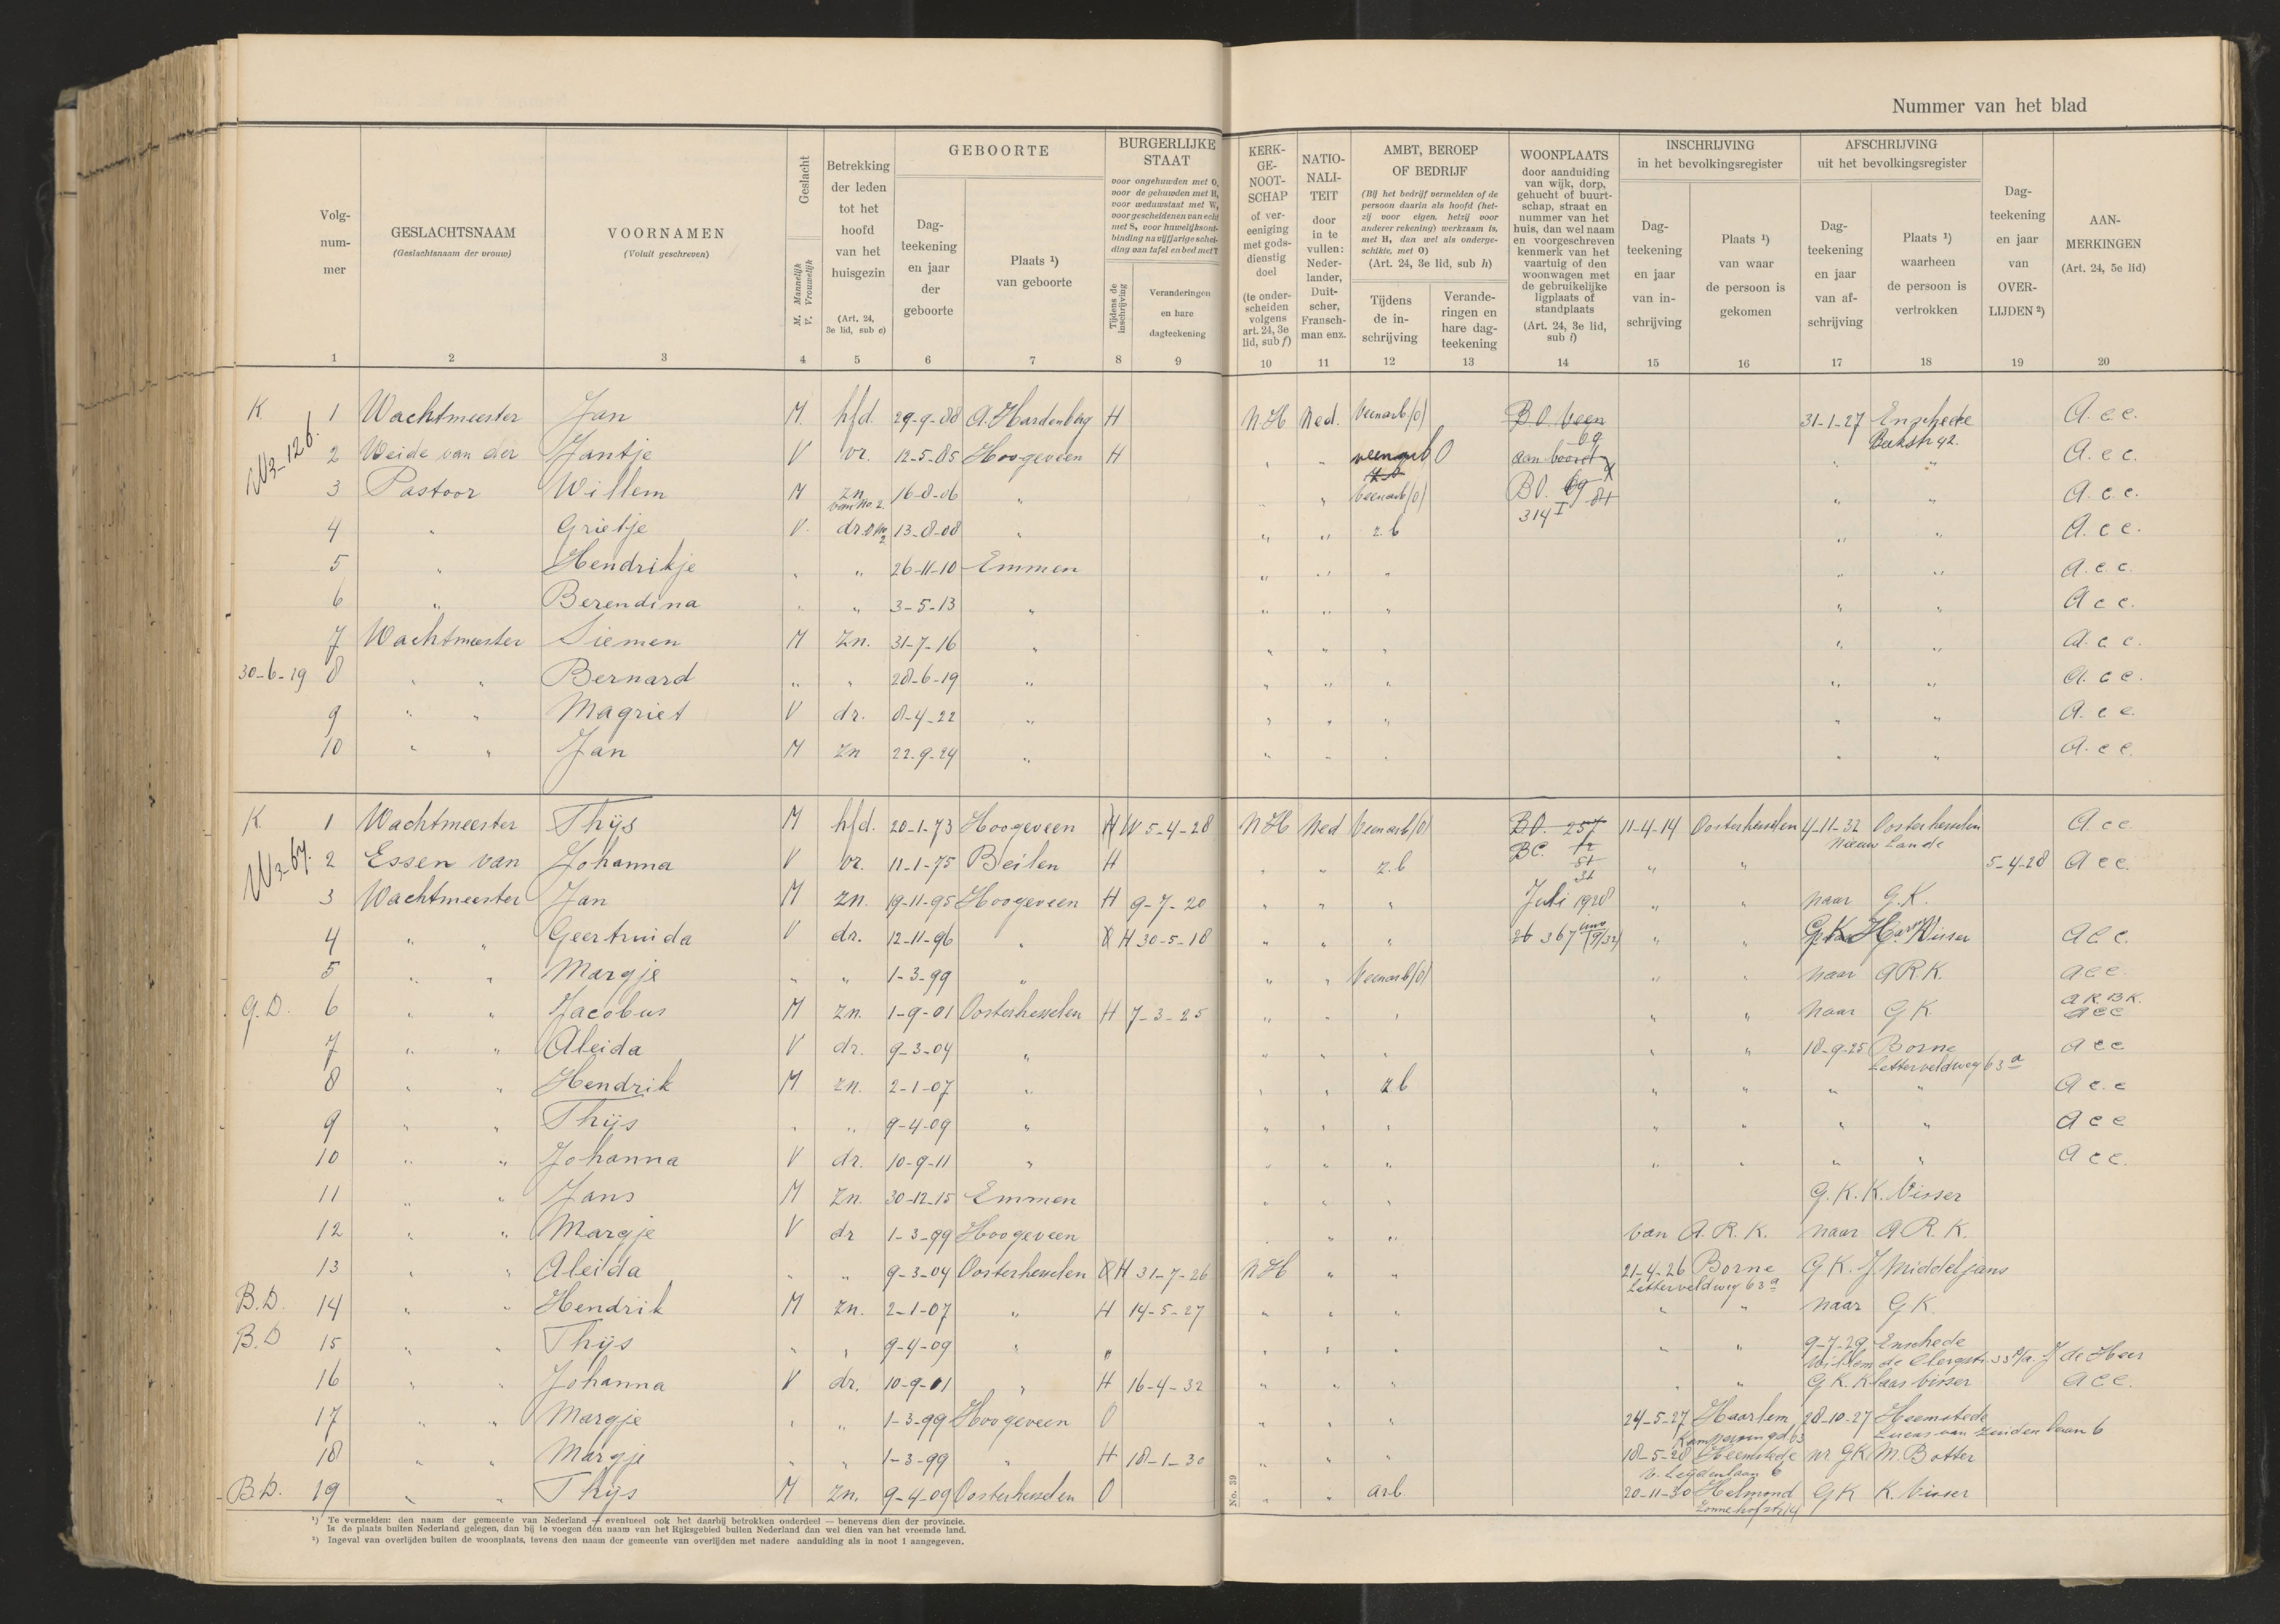 Nummer van het blad
Volg-nummer
GESLACHTSNAAM (Geslachtsnaam der vrouw)
VOORNAMEN (Voluit geschreven)
Geslacht M. Mannelijk V. Vrouwelijk
Betrekking der leden tot het hoofd van het huisgezin (Art. 24, 3e lid, sub c)
GEBOORTE
Dag-teekening en jaar der geboorte
Plaats ¹) van geboorte
BURGERLIJKE STAAT
voor ongehuwden met O, voor de gehuwden met H, voor weduwstaat met W, voor gescheidenen van echt met S, voor huwelijksont-binding na vijfjarige schei-ding van tafel en bed met T
Tijdens de inschrijving
Veranderingen en hare dagteekening
KERK-GE-NOOT-SCHAP of ver-eeniging met gods-dienstig doel (te onder-scheiden volgens art. 24, 3e lid, sub f)
NATIO-NALI-TEIT door in te vullen: Neder-lander, Duit-scher, Fransch-man enz.
AMBT, BEROEP OF BEDRIJF
(Bij het bedrijf vermelden of de persoon daarin als hoofd (het-zij voor eigen, hetzij voor anderer rekening) werkzaam is, met H, dan wel als onderge-schikte, met O) (Art. 24, 3e lid, sub h)
Tijdens de in-schrijving
Verande-ringen en hare dag-teekening
WOONPLAATS door aanduiding van wijk, dorp, gehucht of buurt-schap, straat en nummer van het huis, dan wel naam en voorgeschreven kenmerk van het vaartuig of den woonwagen met de gebruikelijke ligplaats of standplaats (Art. 24, 3e lid, sub i)
INSCHRIJVING in het bevolkingsregister
Dag-teekening en jaar van in-schrijving
Plaats ¹) van waar de persoon is gekomen
AFSCHRIJVING uit het bevolkingsregister
Dag-teekening en jaar van af-schrijving
Plaats ¹) waarheen de persoon is vertrokken
Dag-teekening en jaar van OVER-LIJDEN ²)
AAN-MERKINGEN (Art. 24, 5e lid)
1 2 3 4 5 6 7 8 9 10 11 12 13 14 15 16 17 18 19 20
K 1 Wachtmeester Jan M. hfd. 29-9-88 A. Hardenberg H N.H Ned. Veenarb (o) B.O. Veen 31-1-27 Enschede A.c.c.
W3-126.
2 Weide van der Jantje V vr. 12-5-85 Hoogeveen H " " veenarb O aan boord Beekstr 42. " " A.c.c.
3 Pastoor Willem M zn van No. 2. 16-8-06 " " " Veenarb (o) B.O. 314 I " " A.c.c.
4 " Grietje V. dr. v No 2. 13-8-08 " " " z.b " " A.c.c.
5 " Hendrikje " " 26-11-10 Emmen " " " " " A.c.c.
6 " Berendina " " 3-5-13 " " " " " " A c c.
7 Wachtmeester Siemen M Zn. 31-7-16 " " " " " " A.c.c.
30-6-19 8 " " Bernard " " 28-6-19 " " " " " A.c.c.
9 " " Magriet V dr. 8-4-22 " " " " " " A.c.c.
10 " " Jan M Zn 22-9-24 " " " " " " A.c.c.
K 1 Wachtmeester Thijs M hfd. 20-1-73 Hoogeveen H W 5-4-28 N H Ned Veenarb (o) B.O. 257 11-4-14 Oosterhesselen 4-11-32 Oosterhesselen A.c.c.
Nieuw Lande
W3-67. 2 Essen van Johanna V vr. 11-1-75 Beilen H " " z.b BC. " " 5-4-28 A c c.
3 Wachtmeester Jan M zn. 19-11-95 Hoogeveen H 9-7-20 " " " Juli 1928 " " naar G.K.
4 " " Geertruida V dr. 12-11-96 " O H 30-5-18 " " " 26 367 " " Visser A c c.
5 " " Margje " " 1-3-99 " " " Veenarb (o) " " naar A R.K. A c c.
G.D. 6 " " Jacobus M zn. 1-9-01 Oosterhesselen H 7-3-25 " " " " " naar G K A R. B K. A c c
7 " " Aleida V dr. 9-3-04 " " " " " " 18-9-25 Borne A c c
Letterveldweg 63 a
8 " " Hendrik M zn. 2-1-07 " " " z b " " " " A c.c
9 " " Thijs " " 9-4-09 " " " " " " " " A c c
10 " " Johanna V dr. 10-9-11 " " " " " " " " A c c.
11 " " Jans M Zn. 30-12-15 Emmen " " " G.K. K. Visser
12 " " Margje V dr 1-3-99 Hoogeveen " " " van A.R.K. naar A R K.
13 " " Aleida " " 9-3-04 Oosterhesselen O H 31-7-26 N H " " 21-4-26 Borne G K. J. Middeljans
Letterveldweg 63 a
B.D. 14 " " Hendrik M zn. 2-1-07 " H 14-5-27 " " " " " naar G K.
B.D 15 " " Thijs " " 9-4-09 " " " " " " " 9-7-29 Enschede
Willem de Clerqstr. 33 p/a. J de Heer
16 " " Johanna V dr. 10-9-01 " H 16-4-32 " " " " " G K. Klaas Visser A c c.
17 " " Margje " " 1-3-99 Hoogeveen O " " " 24-5-27 Haarlem 28-10-27 Heemstede
Lucas van Leuiden laan 6
18 " " Margje " " 1-3-99 " H 18-1-30 " " " 18-5-28 Heemstede nr GK M. Botter
v. Leydenlaan 6
B.D. 19 " " Thijs M zn. 9-4-09 Oosterhesselen O " " arb 20-11-30 Helmond G K K. Visser
Zonnehofstr
No. 39
¹) Te vermelden: den naam der gemeente van Nederland — eventueel ook het daarbij betrokken onderdeel — benevens dien der provincie.
Is de plaats buiten Nederland gelegen, dan bij te voegen den naam van het Rijksgebied buiten Nederland dan wel dien van het vreemde land.
²) Ingeval van overlijden buiten de woonplaats, tevens den naam der gemeente van overlijden met nadere aanduiding als in noot 1 aangegeven.